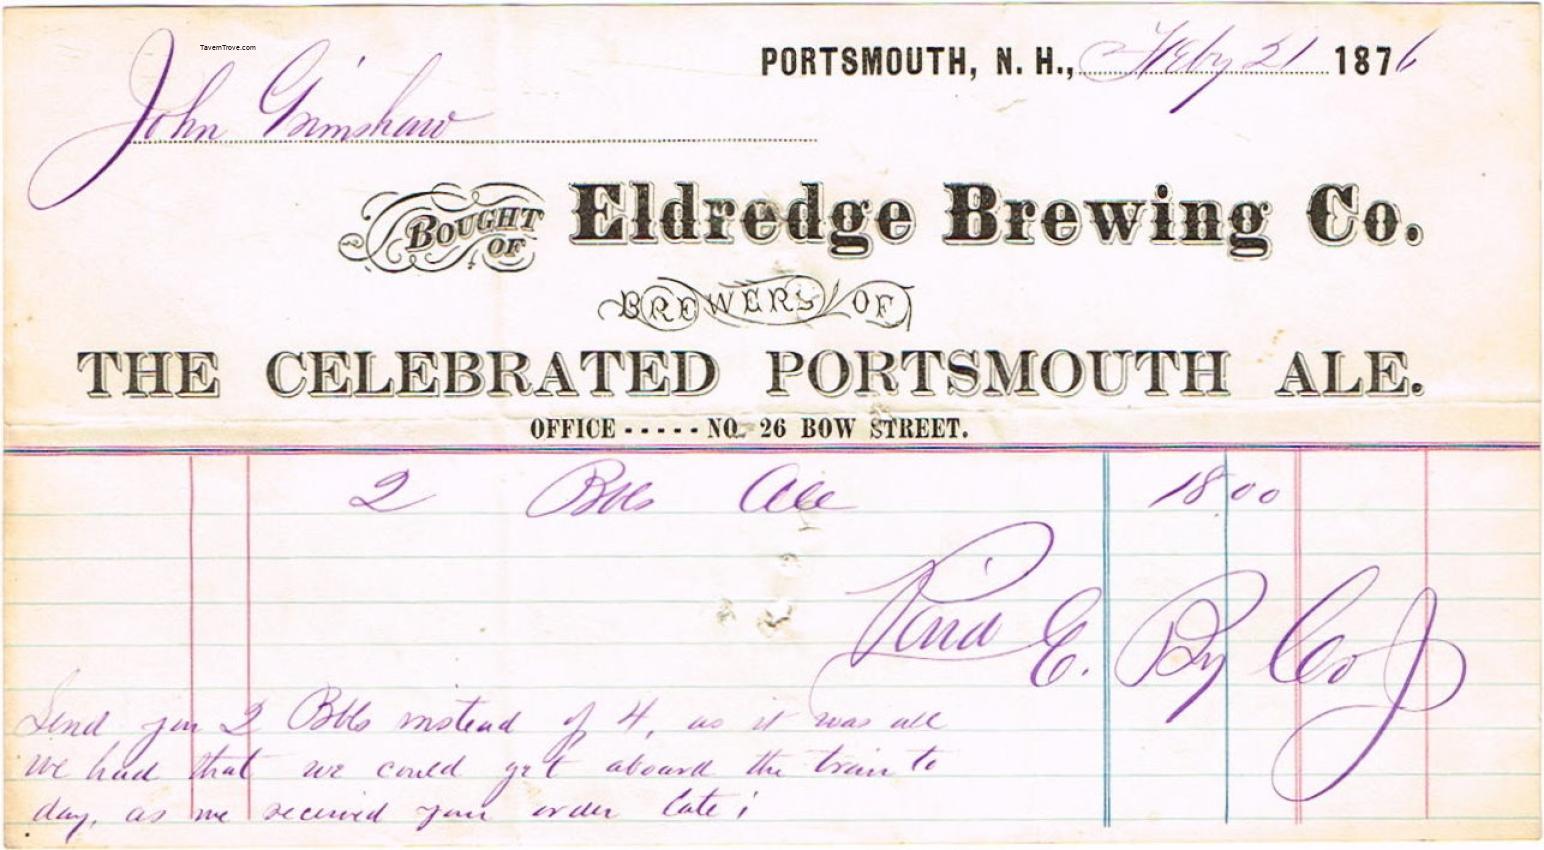 TavernTrove.com
PORTSMOUTH, N. H., Feby 21 1876
John Grimshaw
BOUGHT OF Eldredge Brewing Co.
BREWERS OF
THE CELEBRATED PORTSMOUTH ALE.
OFFICE ----- NO. 26 BOW STREET.
2 Bbls Ale 18.00
Paid E. By Co
Send you 2 Bbls instead of 4, as it was all
we had that we could get aboard the train to
day, as we received your order late;